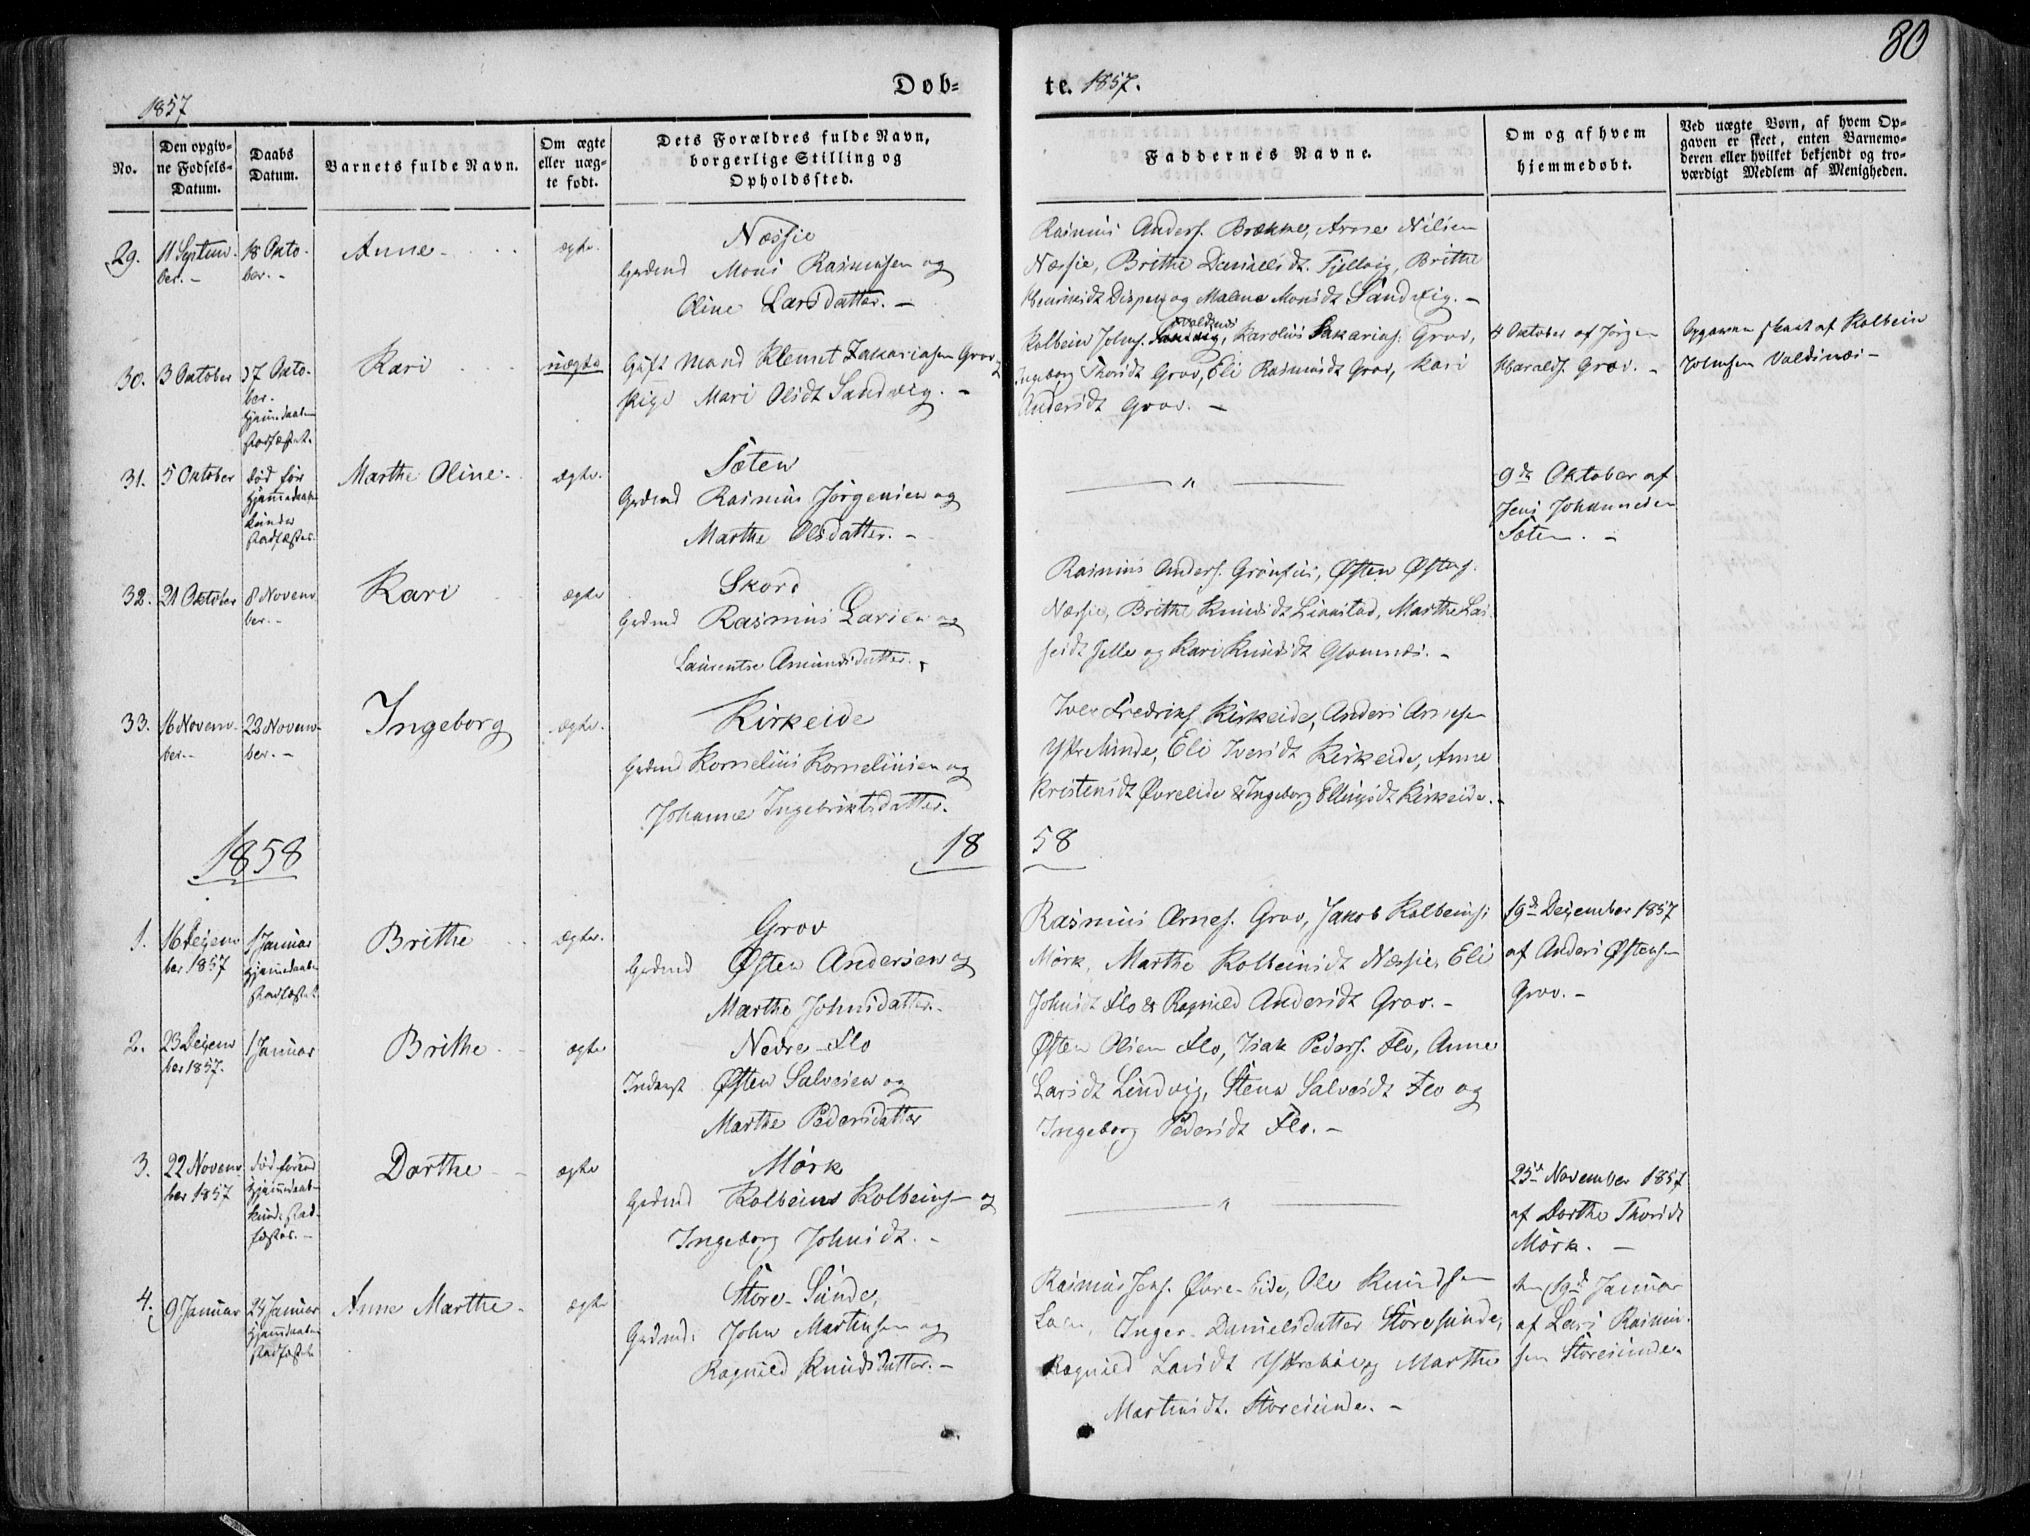 80
1857
Døb-
te. 1857.
No.
Den opgiv-
ne Fødsels-
Datum.
Daabs
Datum.
Barnets fulde Navn.
Om ægte
eller uæg-
te født.
Dets Forældres fulde Navn,
borgerlige Stilling og
Opholdssted.
Faddernes Navne.
Om og af hvem
hjemmedøbt.
Ved uægte Børn, af hvem Op-
gaven er skeet, enten Barnemo-
deren eller hvilket bekjendt og tro-
værdigt Medlem af Menigheden.
29. 11 Septem-
ber.-
18 Okto-
ber.-
Anne
ægte.
Næssie
Grdmd Mons Rasmusen og
Oline Larsdatter. -
Rasmus Anders. Brække, Arne Nilsen
Næssie, Brithe Danielsdt. Fjellvig, Brithe
og Malene Monsdt Sandvig. -
30. 3 Oktober
17 Okto-
ber.
Hjemmedaaben
stadfæstet.
Kari
uægte
Gift Mand Klemet Zakariasen Grov og
Pige Mari Olsdt Sandvig. -
Kolbein Johns. Valdsnes, Karolus Sakarias. Grov,
Ingeborg Thorsdt Grov, Eli Rasmusdt Grov, Kari
Andersdt Grov. -
4 Oktober af Jørgen
Haralds. Grov. -
Opgaven skeet af Kolbein
Johnsen Valdsnæs -
31. 5 Oktober
død før
Hjemmedaaben
kunde
stadfæstes.
Marthe Oline.
ægte.
Sæten
Grdmd Rasmus Jørgensen og
Marthe Olsdatter. -
— " —
9de Oktober af
Jens Johannesen
Sæten. -
32. 21 Oktober
8 Novem-
ber.-
Kari
ægte
Skord
Grdmd Rasmus Larsen og
Laurentse Amundsdatter.
Rasmus Anders. Grønfur, Østen Østens.
Næssie, Brithe Knudsdt Linnstad, Marthe Las-
sesdt Jelle og Kari Knudsdt Glomnæs. -
33. 16 Novem-
ber.-
22 Novem-
ber.-
Ingeborg
ægte.
Kirkeide
Grdmd Kornelius Korneliusen og
Johanne Ingebriktsdatter.
Iver Fredriks. Kirkeide, Anders Arnesen
Yttreminde, Eli Iversdt Kirkeide, Anne
Kristensdt Øvreeide & Ingeborg Ellingsdt Kirkeide. -
1858
18
58
1. 16 Dezem-
ber 1857
1 Januar
Hjemmedaaben
stadfæstet
Brithe
ægte.
Grov
Grdmd Østen Andersen og
Marthe Johnsdatter.
Rasmus Arnes. Grov, Jakob Kolbeins.
Mørk, Marthe Kolbeinsdt Næssie, Eli
Johnsdt Flo & Ragnild Andersdt Grov. -
19de Dezember 1857
af Anders Østensen
Grov. -
2. 23 Dezem-
ber 1857.
1 Januar
Brithe
ægte
Nedre-Flo
Inderst Østen Salvesen og
Marthe Pedersdatter
Østen Olsen Flo, Isak Peders. Flo, Anne
Larsdt Lindvig, Stena Salvesdt Flo og
Ingeborg Pedersdt Flo. -
3. 22 Novem-
ber 1857
død førend
Hjemmedaaben
kunde stad-
fæstes. -
Dorthe
ægte
Mørk
Grdmd Kolbeins Kolbeinsen og
Ingeborg Johnsdt. -
— " —
25de November 1857
af Dorthe Thorsdt
Mørk. -
4. 9 Januar
24 Januar
Hjemmedaaben
stadfæstet
Anne Marthe.
ægte
Store-Sunde,
Grdmd. John Martinsen og
Ragnild Knudsdatter. -
Rasmus Jens. Øvre-Eide, Ole Knudsen
Inger Danielsdatter Storesunde,
Ragnild Larsdt Yttrebø og Marthe
Martinsdt. Storesunde. -
den 19d Januar
af Lars Rasmus-
sen Storesunde.